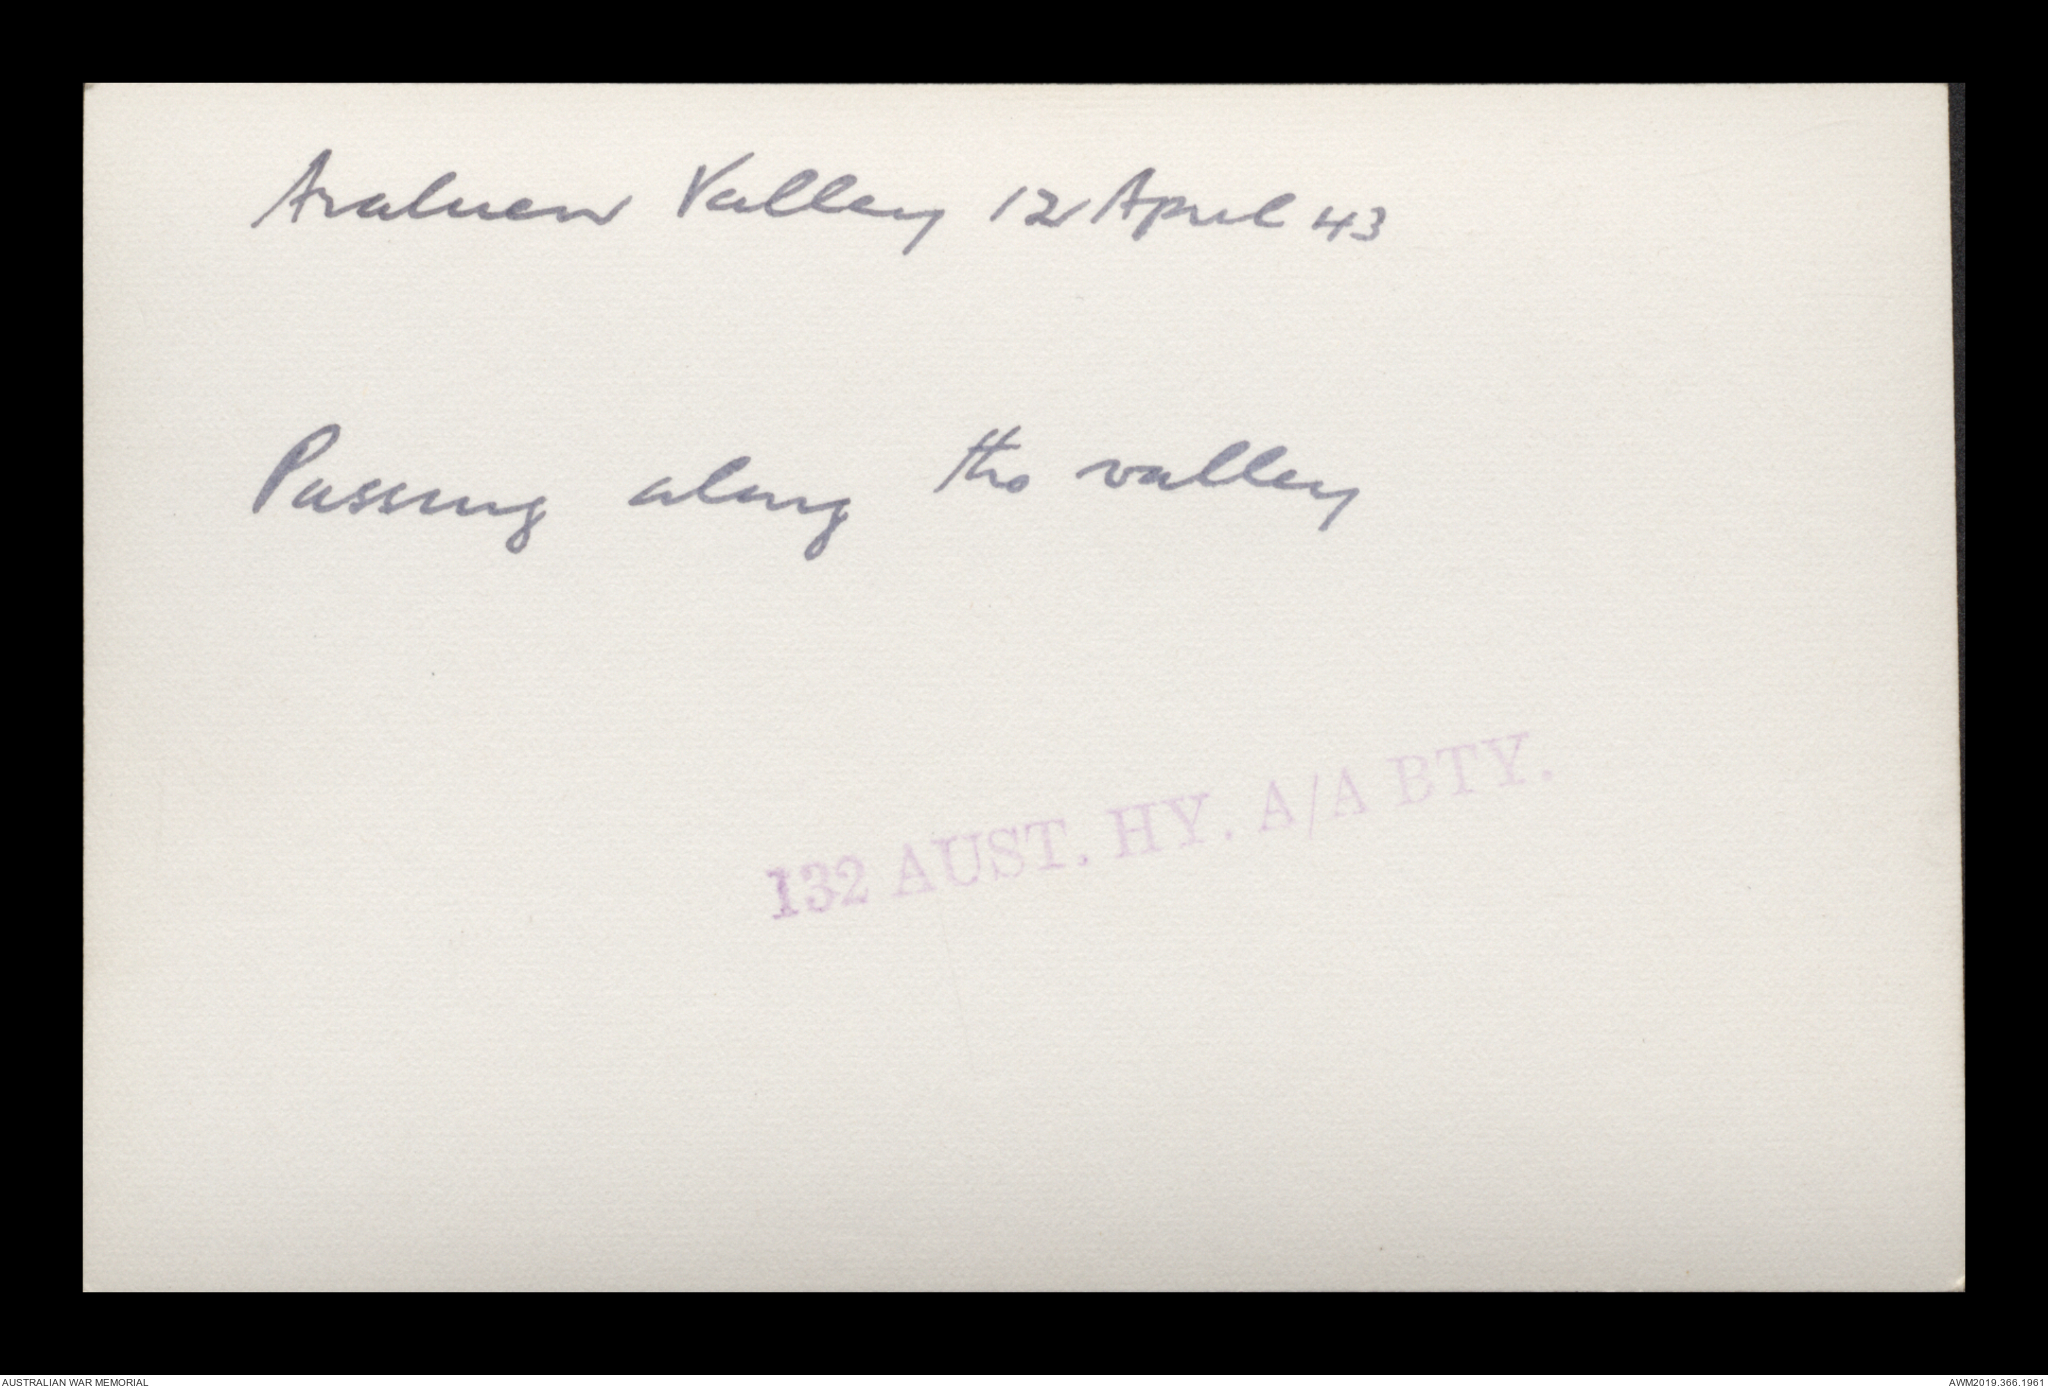 Araluen Valley 12 April 43
Passing along the valley
132 AUST. HY. A/A BTY.
AUSTRALIAN WAR MEMORIAL
AWM2019.366.1961